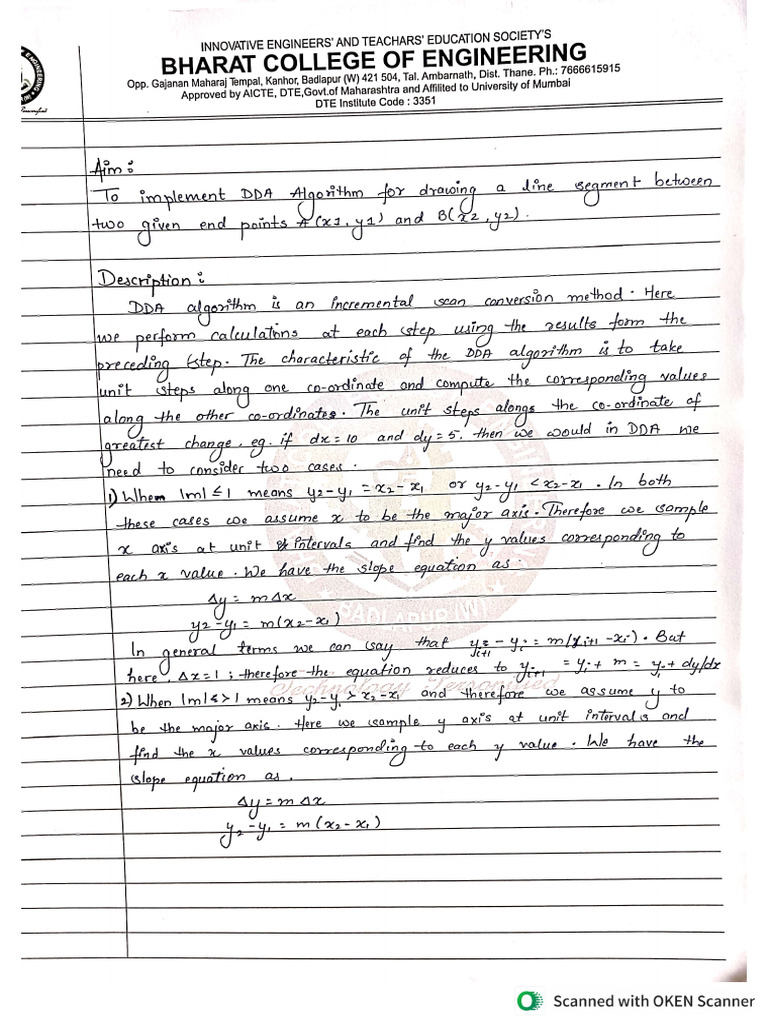 INNOVATIVE ENGINEERS' AND TEACHARS' EDUCATION SOCIETY'S
BHARAT COLLEGE OF ENGINEERING
Opp. Gajanan Maharaj Tempal, Kanhor, Badlapur (W) 421 504, Tal. Ambarnath, Dist. Thane. Ph.: 7666615915
Approved by AICTE, DTE,Govt.of Maharashtra and Affilited to University of Mumbai
DTE Institute Code : 3351
Aim :
To implement DDA Algorithm for drawing a line segment between
two given end points A (x1, y1) and B(x2, y2).
Description :
DDA algorithm is an incremental scan conversion method. Here
we perform calculations at each step using the results form the
preceding step. The characteristic of the DDA algorithm is to take
unit steps along one co-ordinate and compute the corresponding values
along the other co-ordinates. The unit steps alongs the co-ordinate of
greatest change, eg. if dx = 10 and dy = 5, then we would in DDA we
need to consider two cases.
1) When |m| ≤ 1 means y2 - y1 = x2 - x1 or y2 - y1 < x2 - x1 . In both
these cases we assume x to be the major axis. Therefore we sample
x axis at unit intervals and find the y values corresponding to
each x value. We have the slope equation as.
Δy = m Δx
y2 - y1 = m(x2 - x1)
In general terms we can say that yi+1 - yi = m(xi+1 - xi). But
here, Δx = 1 ; therefore the equation reduces to yi+1 = yi + m = yi + dy/dx
2) When |m| > 1 means y2 - y1 > x2 - x1 and therefore we assume y to
be the major axis. Here we sample y axis at unit intervals and
find the x values corresponding to each y value. We have the
slope equation as.
Δy = m Δx
y2 - y1 = m (x2 - x1)
BADLAPUR (W)
Technology Personified
Scanned with OKEN Scanner